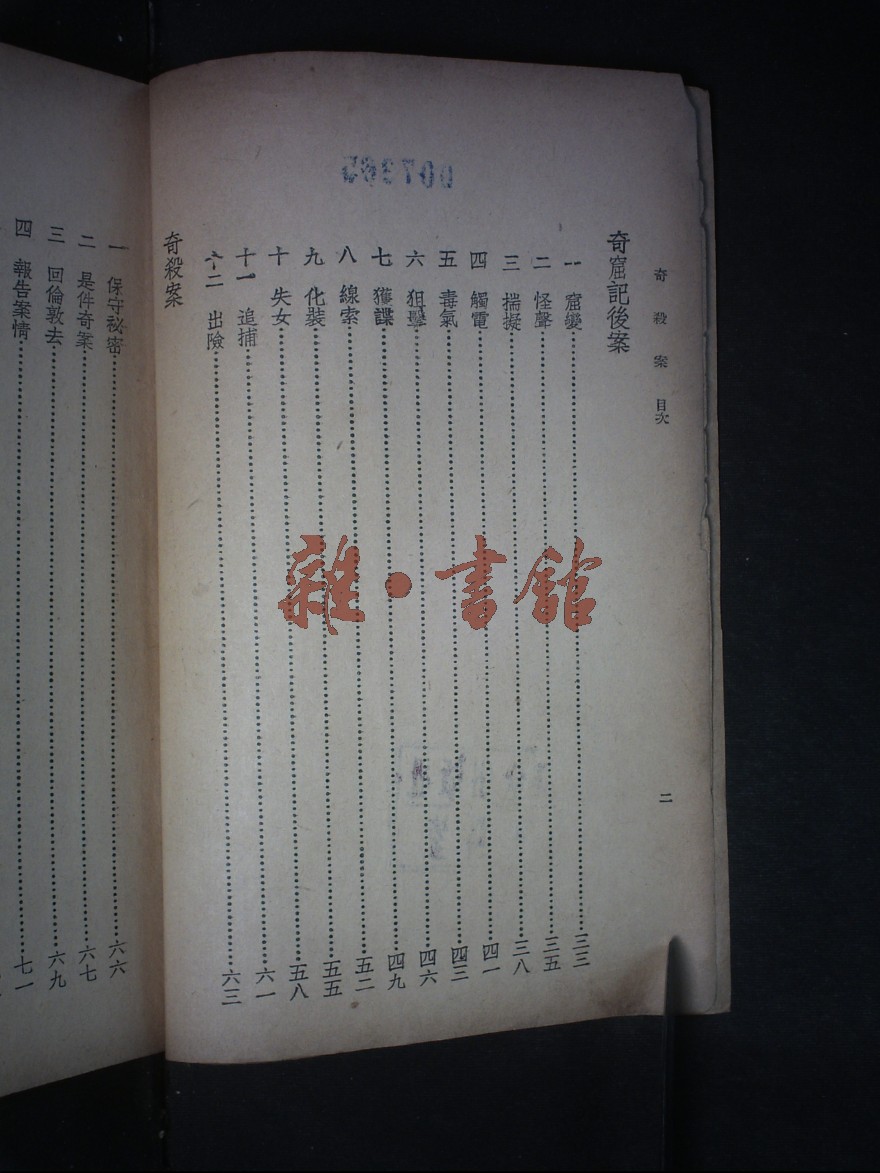 奇殺案 目次 二
奇窟記後案
一 窟變 三三
二 怪聲 三五
三 揣擬 三八
四 觸電 四一
五 毒氣 四三
六 狙擊 四六
七 獲諜 四九
八 線索 五二
九 化裝 五五
十 失女 五八
十一 追捕 六一
十二 出險 六三
奇殺案
一 保守祕密 六六
二 是件奇案 六七
三 回倫敦去 六九
四 報告案情 七一
007365
雜·書館